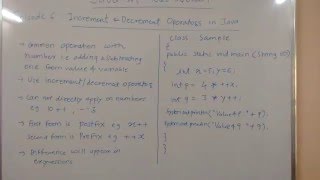 Increment & Decrement Operators in Java
→ Common operation with
numbers is adding & subtracting
one from value of variable
→ Use increment/decrement operators
→ Can not directly apply on numbers eg
10++
→ First form is Postfix eg x++
Second form is Prefix eg ++x
→ Difference will appear in
Expressions
class Sample
{
public static void main (String
{
int x=5, y=5;
int p = 3 * ++x;
int q = 3 * y++;
System.out.println("Value of P " + P);
System.out.println("Value of q " + q);
}
}